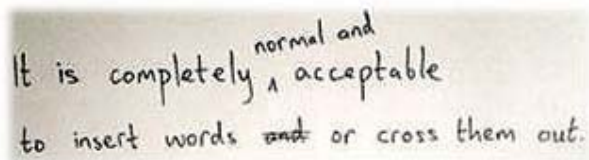 It is completely normal and acceptable
to insert words and or cross them out.